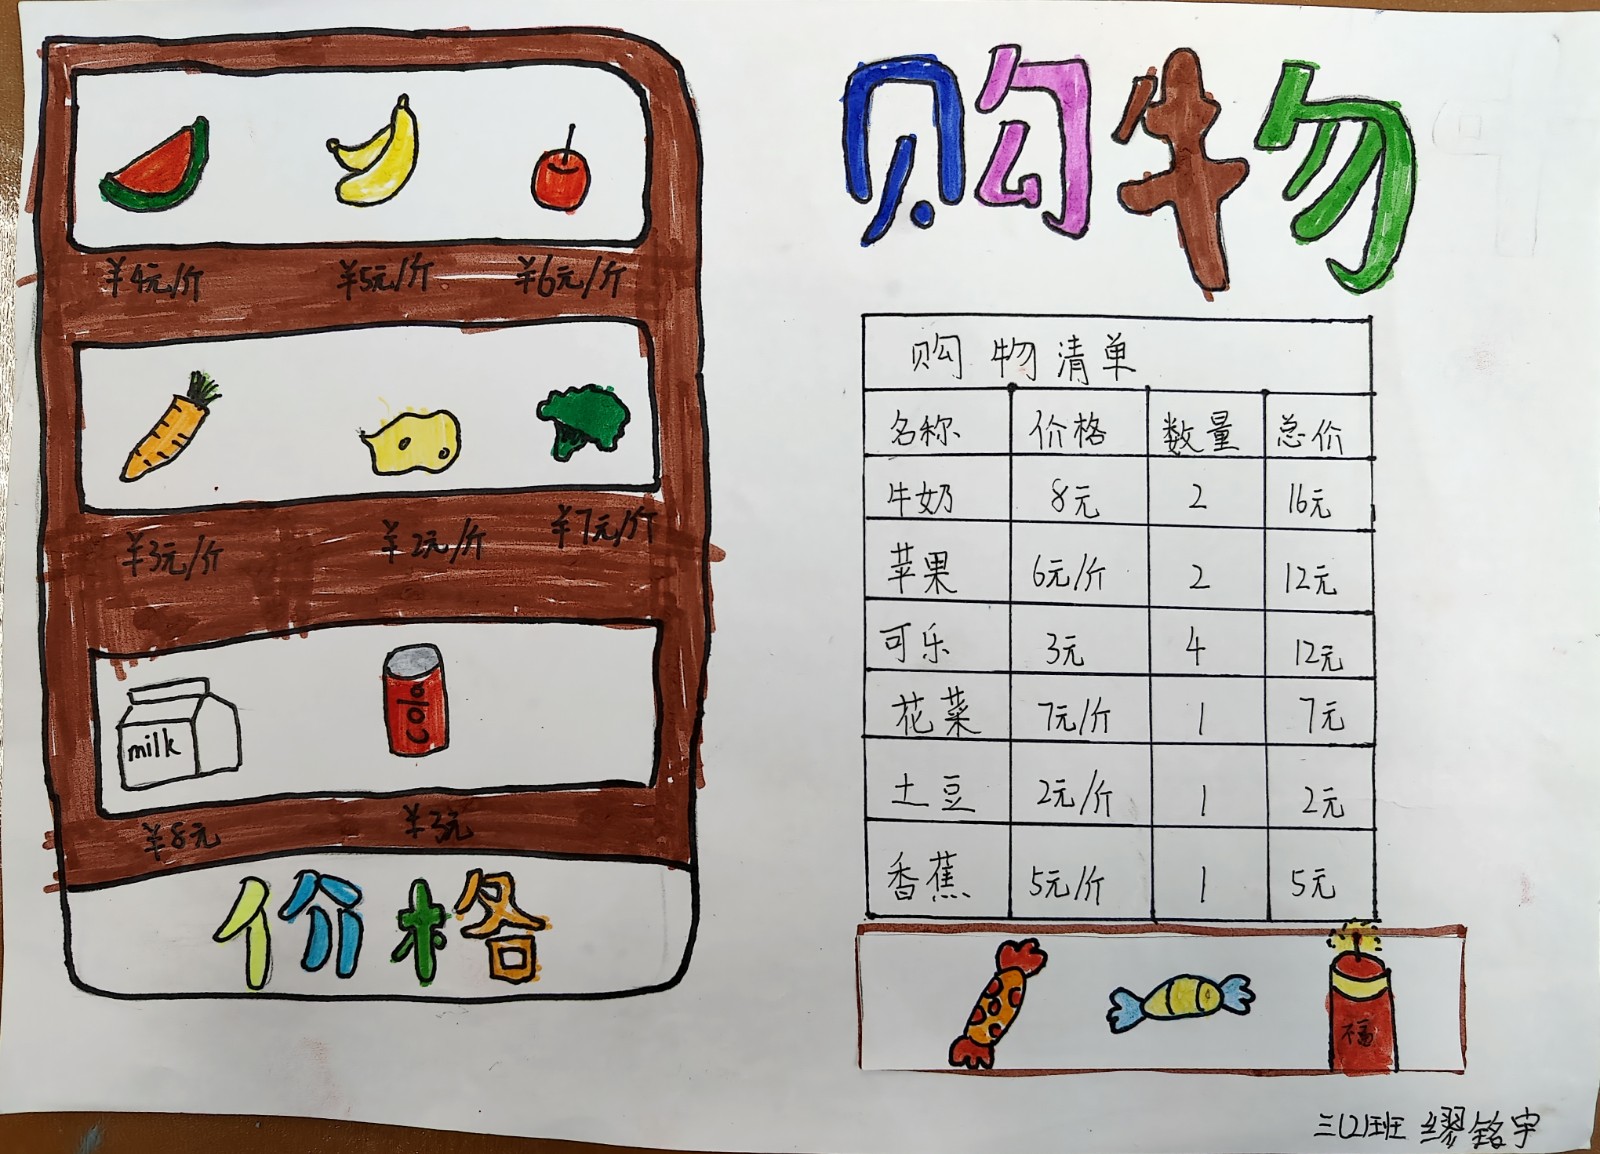 ¥4元/斤 ¥5元/斤 ¥6元/斤
¥3元/斤 ¥2元/斤 ¥7元/斤
milk cola
¥8元 ¥3元
价格
购物
购物清单
名称 价格 数量 总价
牛奶 8元 2 16元
苹果 6元/斤 2 12元
可乐 3元 4 12元
花菜 7元/斤 1 7元
土豆 2元/斤 1 2元
香蕉 5元/斤 1 5元
福
三(2)班 缪铭宇